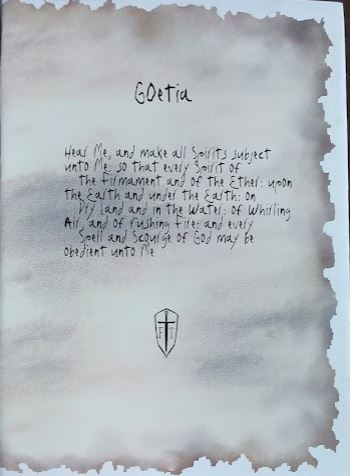 GOetia
Hear Me, and make all Spirits subject
unto Me: so that every Spirit of
the Firmament and of the Ether: upon
the Earth and under the Earth: on
Dry Land and in the Water: of Whirling
Air, and of rushing Fire: and every
Spell and Scourge of God may be
obedient unto Me